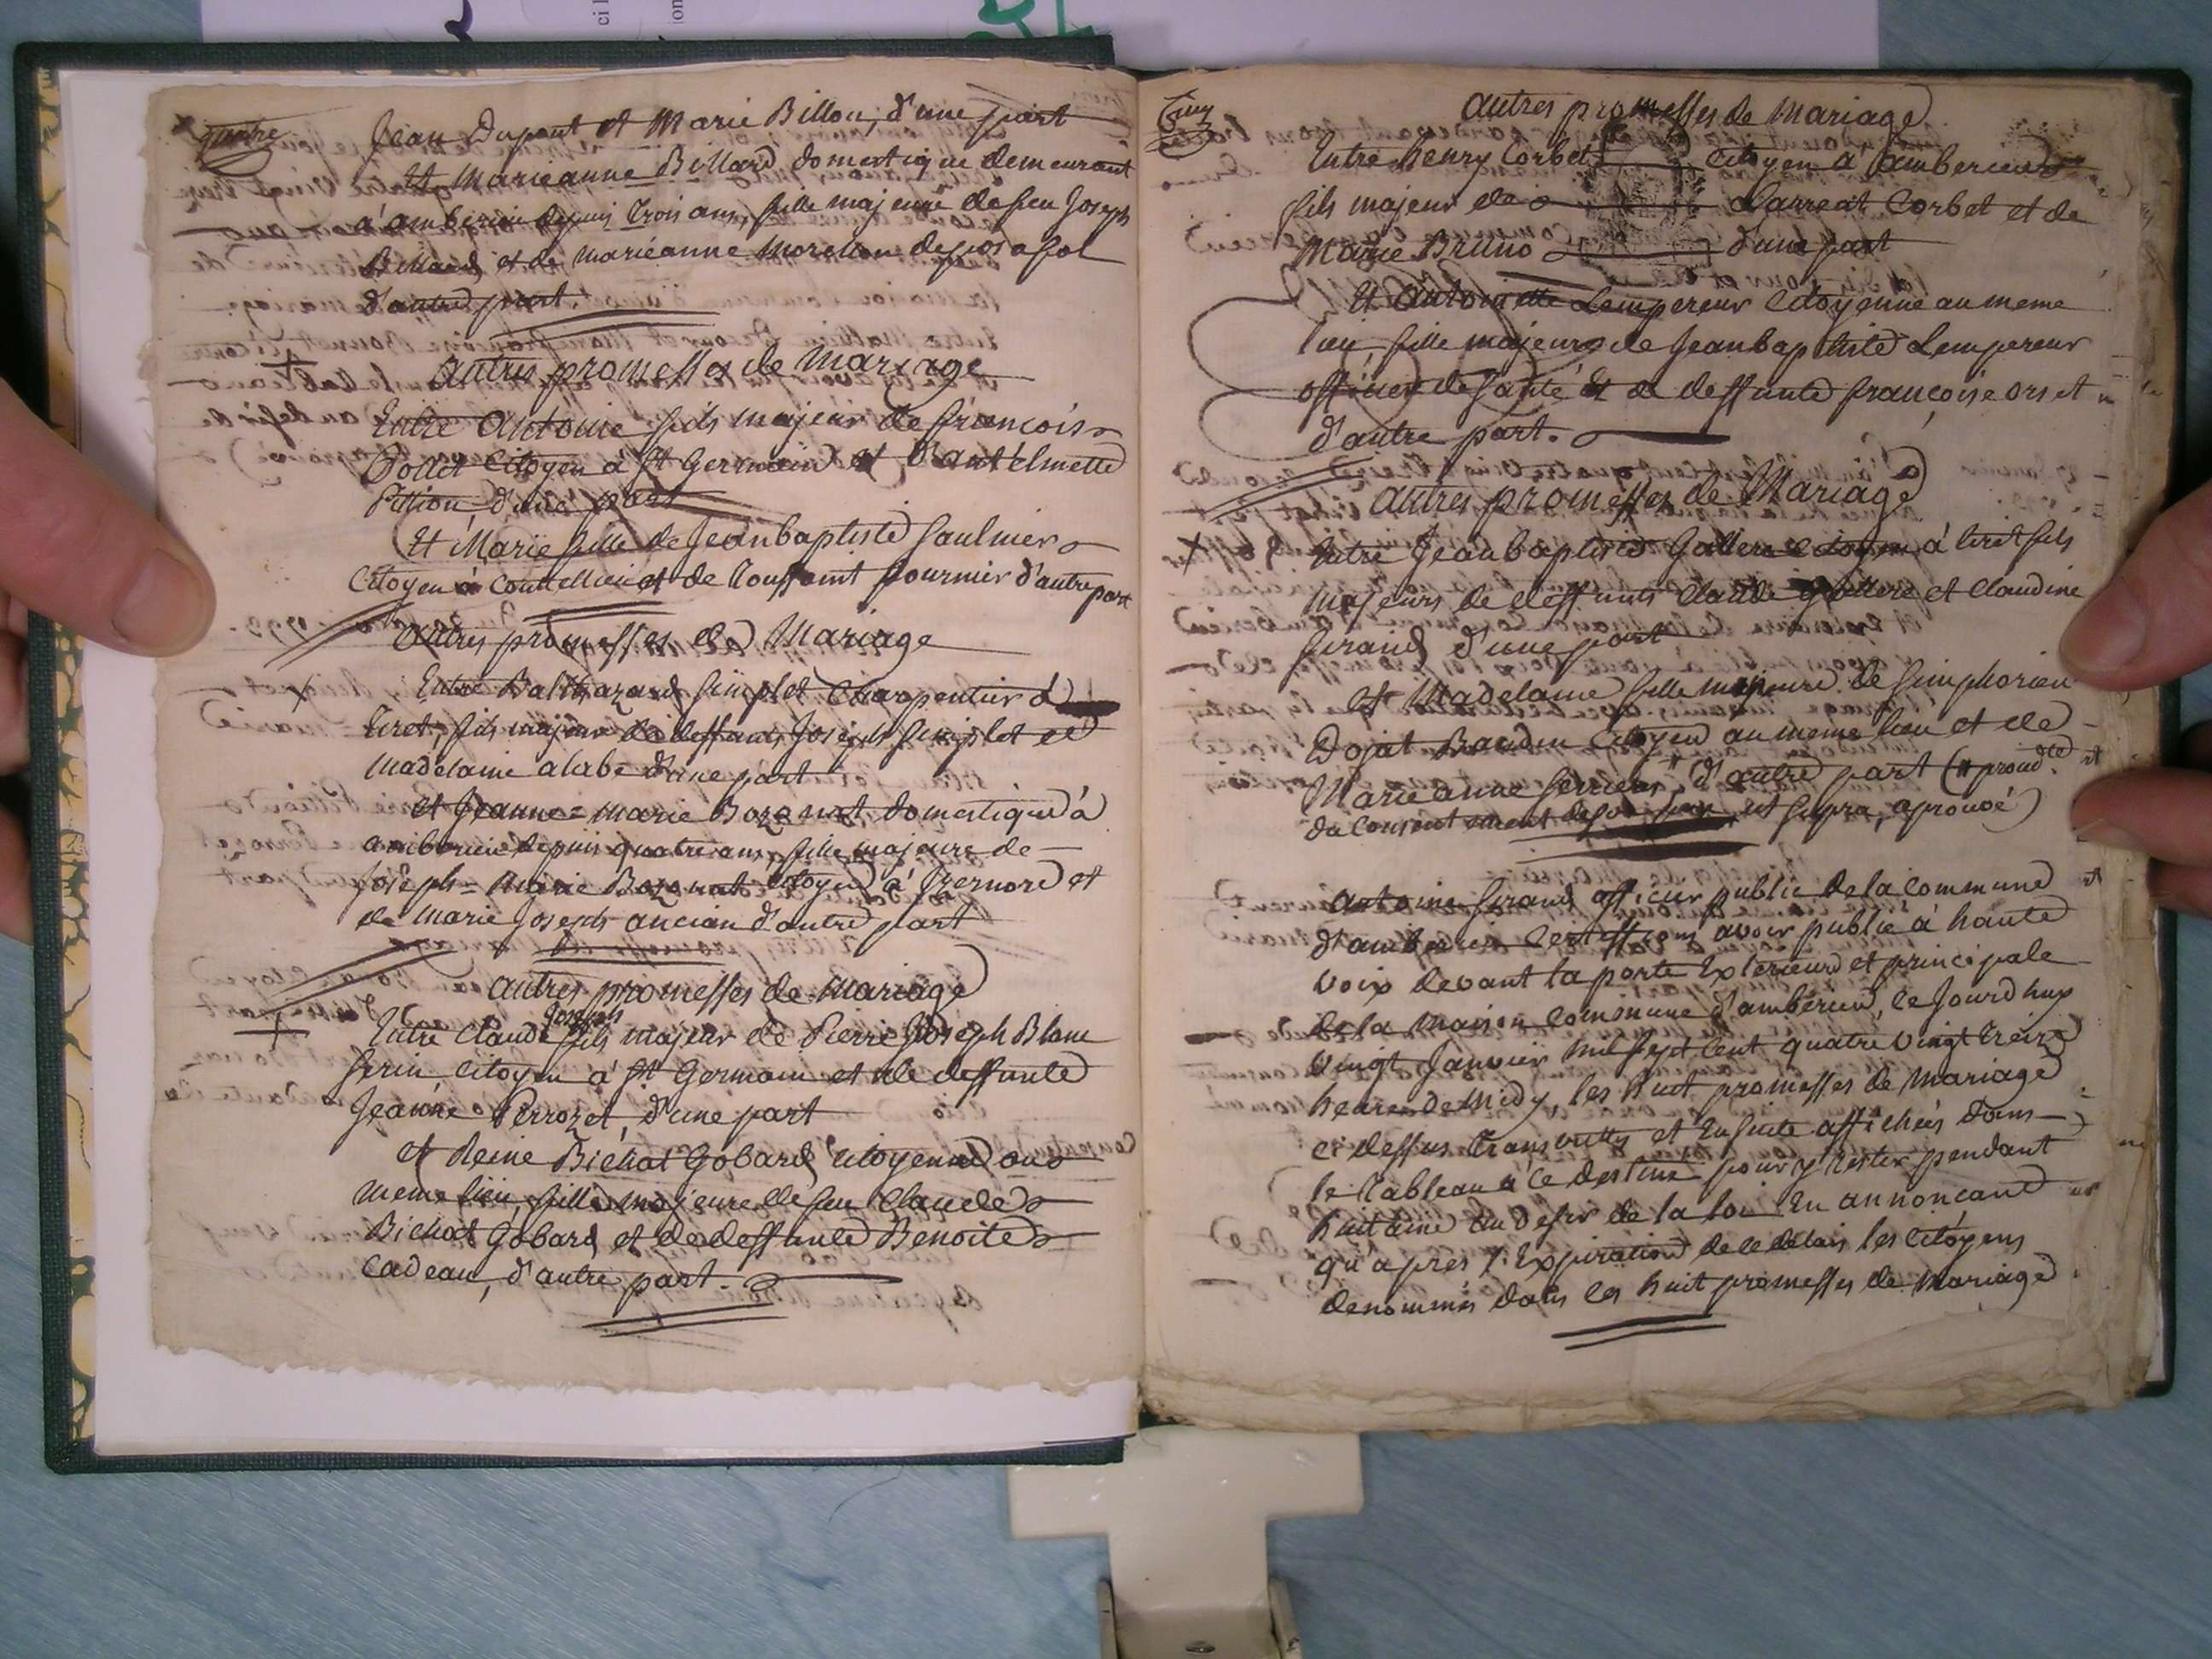 quatre
Jean Dupont et Marie Billon, d'une part
Et Marieanne Billard domestique demeurant
a amberieu depuis trois ans, fille majeure de feu Joseph
Billard et de Marieanne Morellon de posafol
d'autre part.
autres promesses de mariage
Entre Antoine fils majeur de francois
Dollet Citoyen à St Germain et d'anthelmette
Pittion d'une part
Et Marie fille de Jeanbaptiste Saulnier
Citoyen à Coutellieu et de Toussaint fournier d'autre part
autres promesses de Mariage
Entre Balthazard Simplet Charpentier à
tiret, fils majeur de deffunts Joseph Simplet et
Madelaine alabe d'une part
et Jeanne = marie Bozonnet domestique à
amberieu depuis quatre ans, fille majeure de
Joseph = Marie Bozonnet citoyen à Izernore et
de Marie Joseph ancian d'autre part
autres promesses de Mariage
Joseph
Entre Claude fils majeur de Pierre Joseph Blanc
ferin, citoyen à St Germain et de deffunte
Jeanne Perrozet, d'une part
et Reine Bichat Gobard citoyenne au
meme lieu, fille majeure de feu Claude
Bichat Gobard et de deffunte Benoite
Cadeau, d'autre part.
Cinq
autres promesses de mariage
Entre henry Corbet citoyen à amberieu
fils majeur de Laureat Corbet et de
Marie Bruno d'une part
Et Antoinette Lempereur Citoyenne au meme
lieu, fille majeure de Jeanbaptiste Lempereur
officier de santé et de deffunte francoise orset
d'autre part.
autres promesses de Mariage
Entre Jeanbaptiste Gallere citoyen à tiret fils
majeurs de deffunts Claude Gallere et Claudine
ferand d'une part
et Madelaine fille mineure de Simphorien
Dojat Baudin Citoyen au meme lieu et de
Marieanne ferriere, # d'autre part (# proud.te
du consentement de son pere, ut supra, aprouvé)
Antoine ferand officier public de la commune
d'amberieu certiffions avoir publié à haute
voix devant la porte Exterieure et principale
de la maison commune d'amberieu, ce Jourdhuy
vingt Janvier mil sept cent quatre vingt treize
heure de midy, les huit promesses de mariage
ci dessus transcrittes et Ensuite affichées dans
le tableau à ce destiné pour y rester pendant
huitaine au desir de la loi En annoncant
qu'après l'Expiration de ce delais les citoyens
denommés dans les huit promesses de mariage